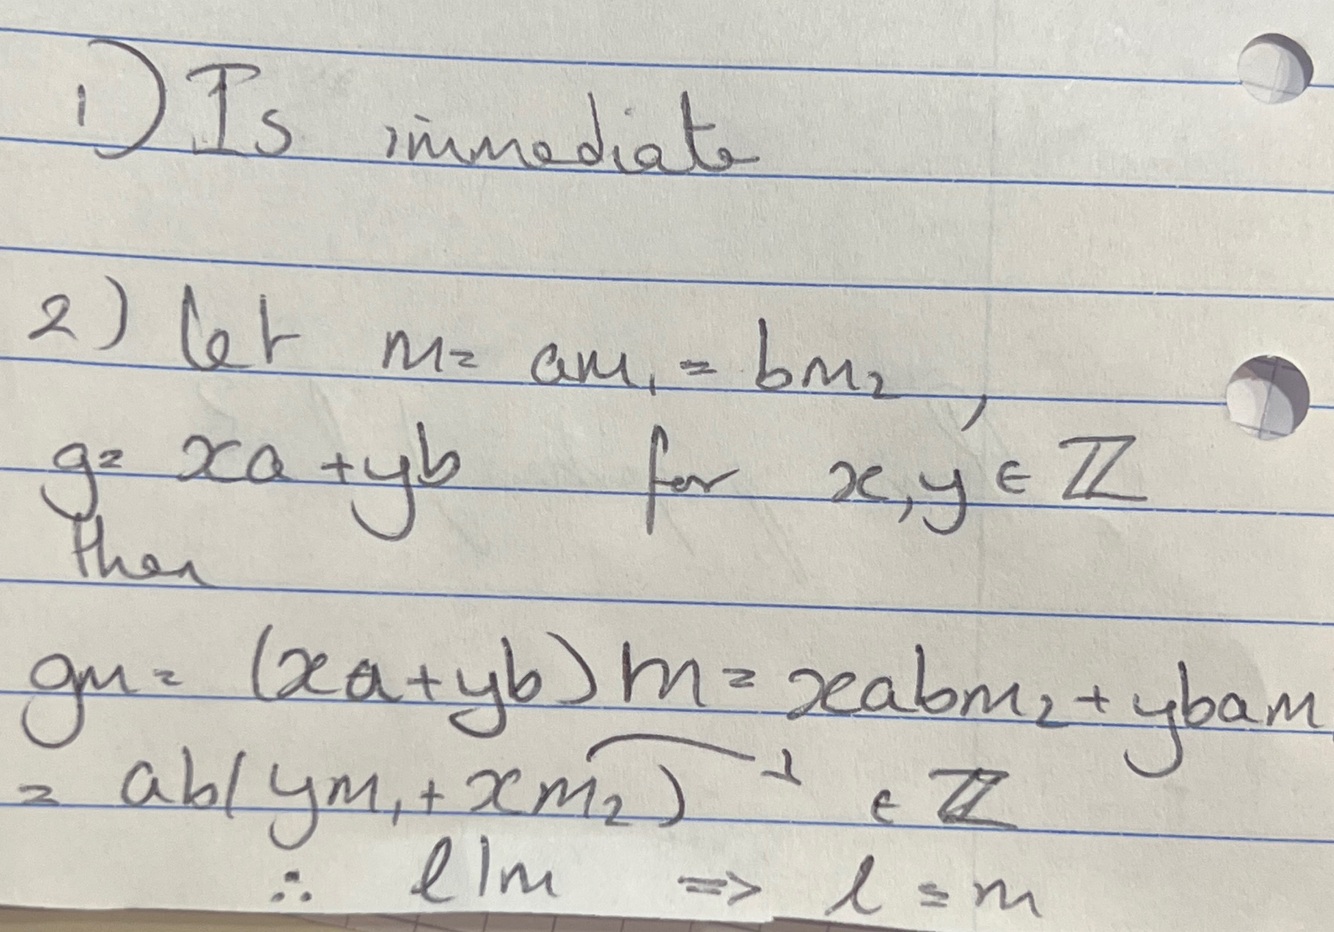 1) Is immediate
2) let m = am₁ = bm₂,
g = xa + yb for x, y ∈ ℤ
then
gm = (xa + yb) m = xabm₂ + ybam
= ab(ym₁ + xm₂) ∈ ℤ
∴ l | m ⇒ l = m